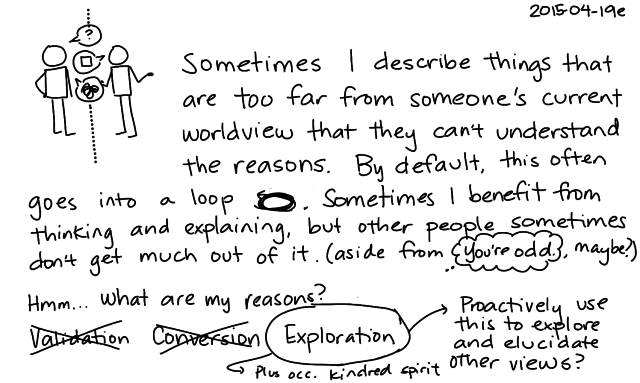 2015-04-19e
?
Sometimes I describe things that
are too far from someone's current
worldview that they can't understand
the reasons. By default, this often
goes into a loop. Sometimes I benefit from
thinking and explaining, but other people sometimes
don't get much out of it. (aside from you're odd., maybe?)
Hmm... what are my reasons?
Validation Conversion Exploration
Plus occ. kindred spirit
Proactively use
this to explore
and elucidate
other views?